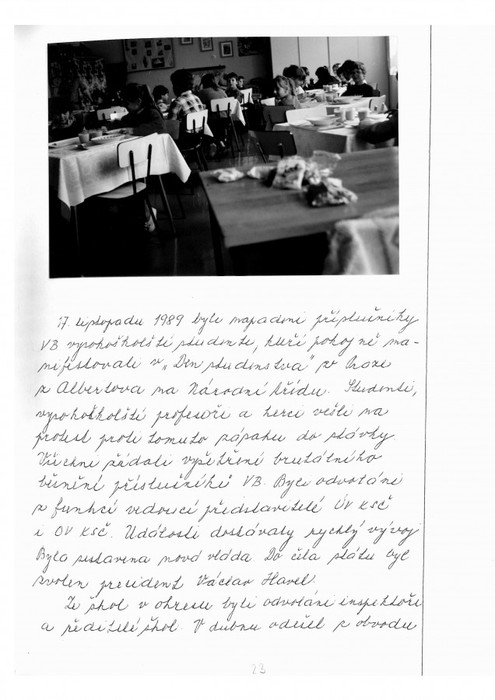 17. listopadu 1989 byli napadeni příslušníky
VB vysokoškolští studenti, kteří pokojně ma-
nifestovali v „Den studenstva" v Praze
z Albertova na Národní třídu. Studenti,
vysokoškolští profesoři a herci vešli na
protest proti tomuto zásahu do stávky.
Všichni žádali vyšetření brutálního
běsnění příslušníků VB. Byli odvoláni
z funkcí vedoucí představitelé ÚV KSČ
i OV KSČ. Události dostávaly rychlý vývoj
Byla sestavena nová vláda Do čela státu byl
zvolen prezident Václav Havel.
Ze škol v okresu byli odvoláni inspektoři
a ředitelé škol. V dubnu odešel z obvodu
23